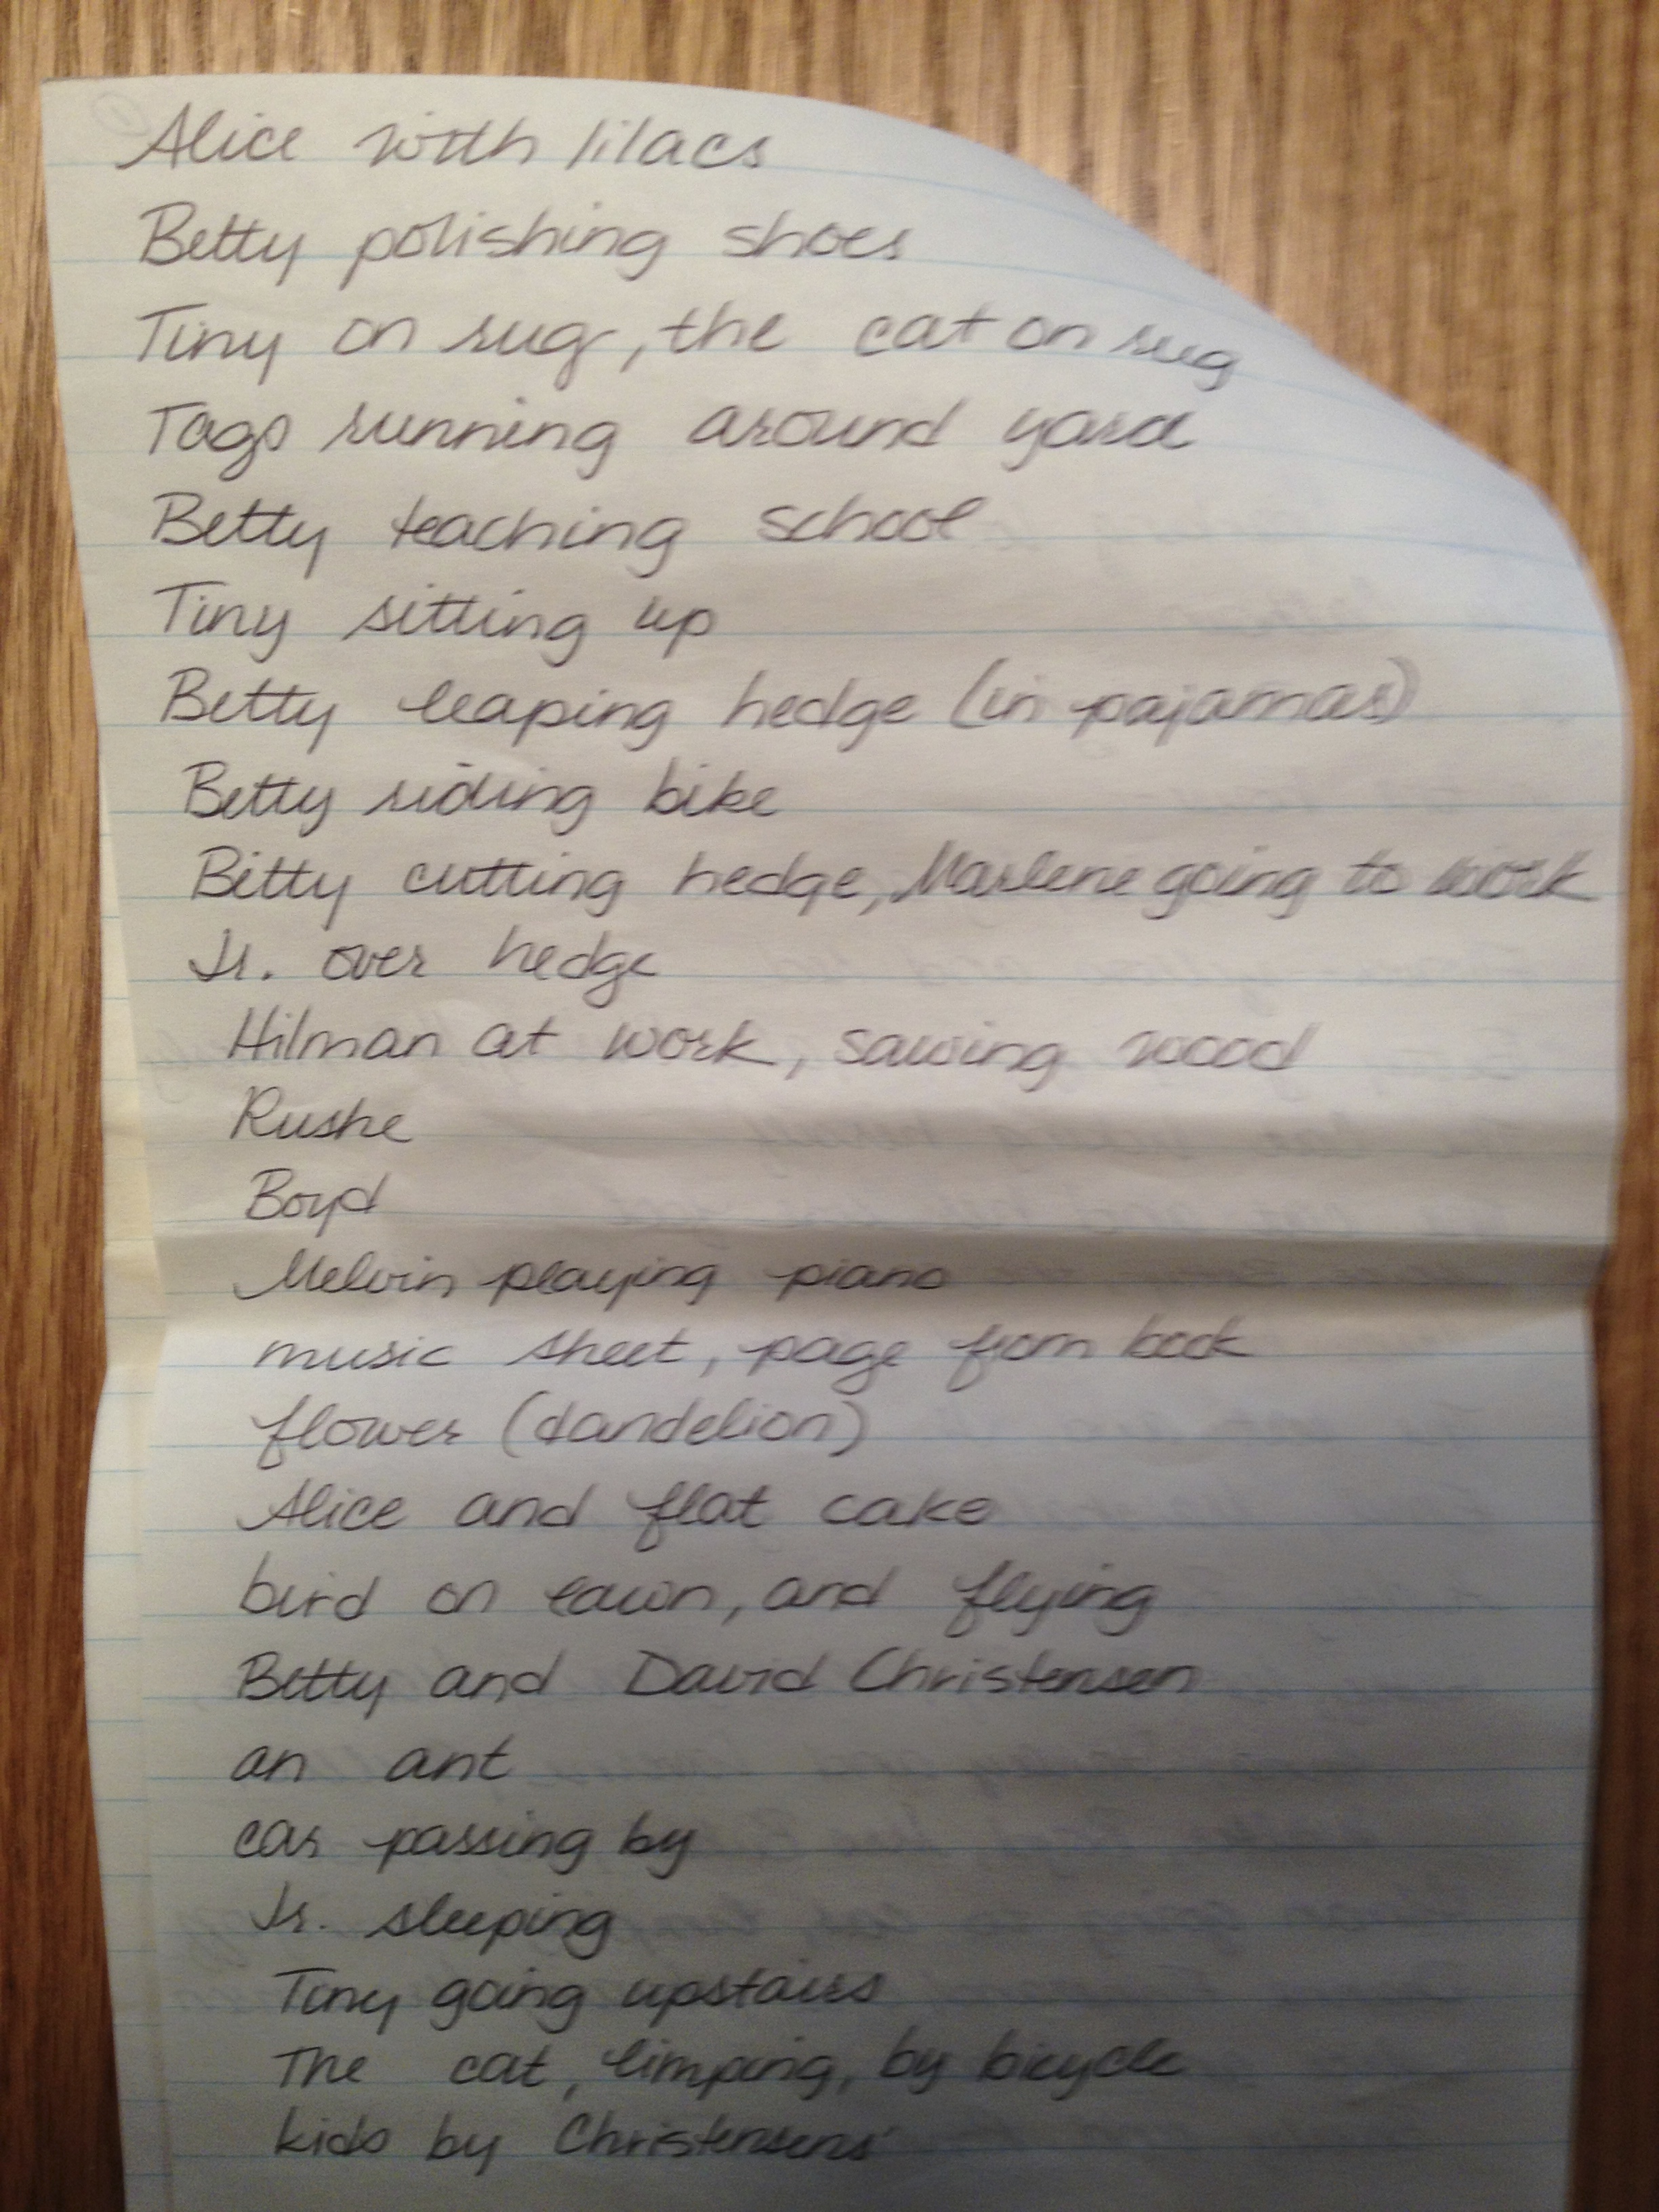 Alice with lilacs
Betty polishing shoes
Tiny on rug, the cat on rug
Tags running around yard
Betty teaching school
Tiny sitting up
Betty leaping hedge (in pajamas)
Betty riding bike
Betty cutting hedge, Marlene going to work
Jr. over hedge
Hilman at work, sawing wood
Rushe
Boyd
Melvin playing piano
music sheet, page from book
flower (dandelion)
Alice and flat cake
bird on lawn, and flying
Betty and David Christensen
an ant
car passing by
Jr. sleeping
Tiny going upstairs
The cat, limping, by bicycle
kids by Christensens'